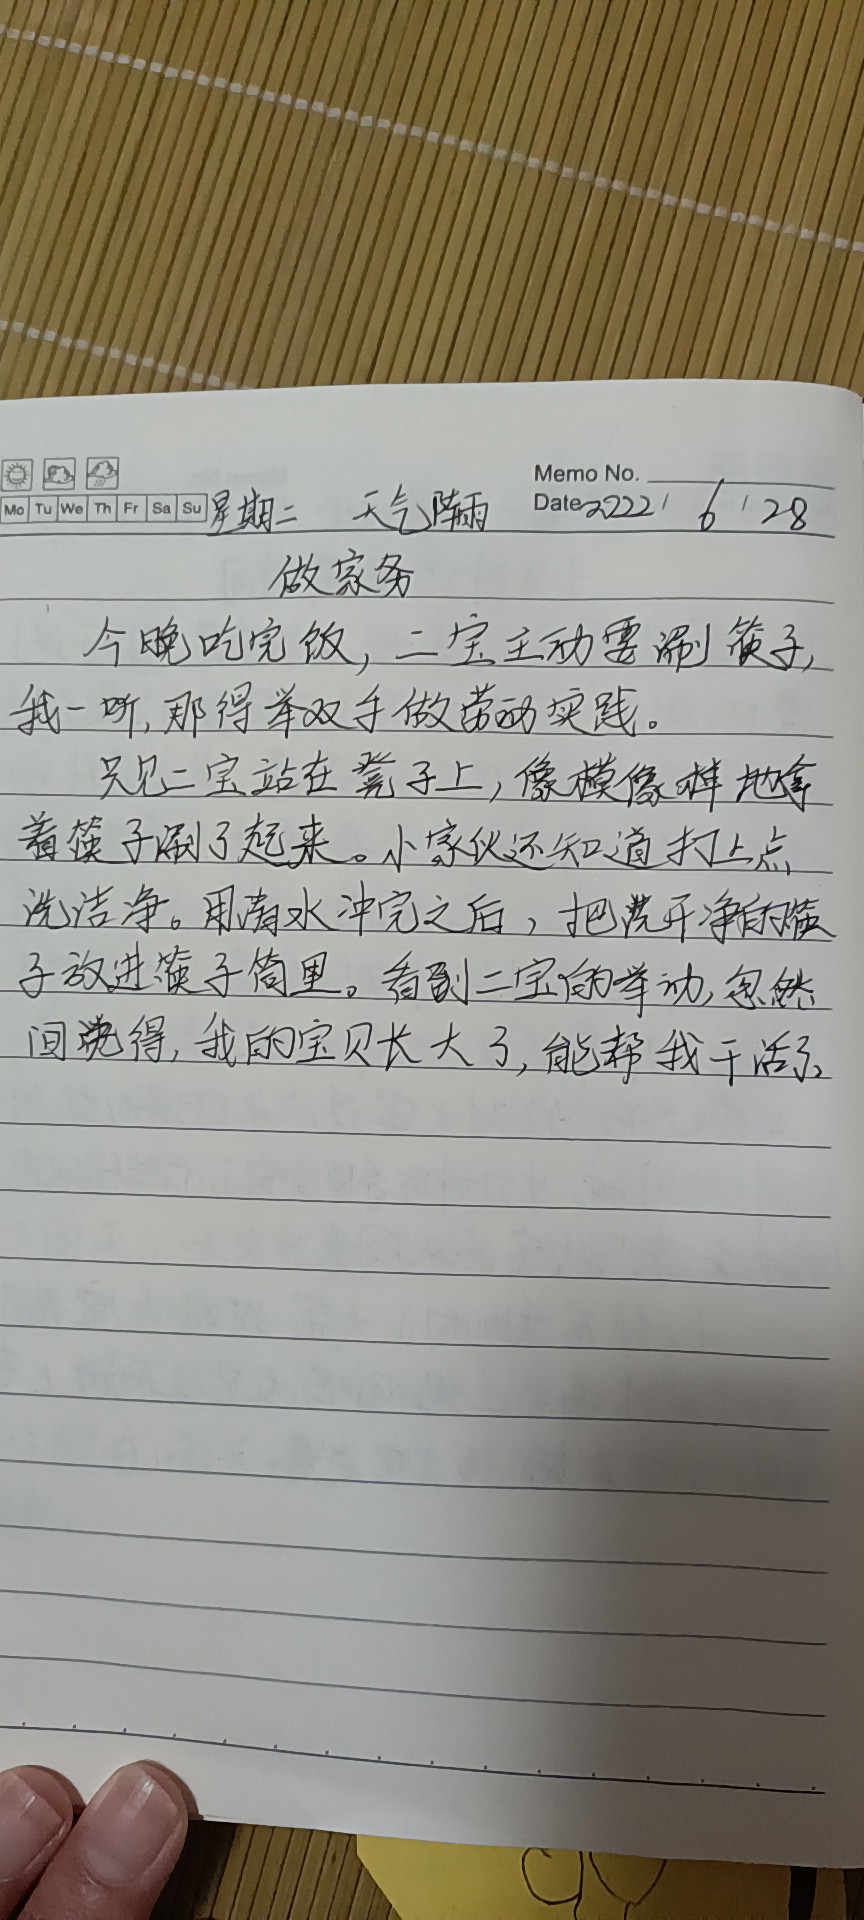 Memo No.
Mo Tu We Th Fr Sa Su 星期二 天气阵雨 Date 2022/6/28
做家务
今晚吃完饭,二宝主动要涮筷子,
我一听,那得举双手做劳动实践。
只见二宝站在凳子上,像模像样地拿
着筷子涮了起来。小家伙还知道打上点
洗洁净。用清水冲完之后,把洗干净的筷
子放进筷子筒里。看到二宝的举动,忽然
间觉得,我的宝贝长大了,能帮我干活了。